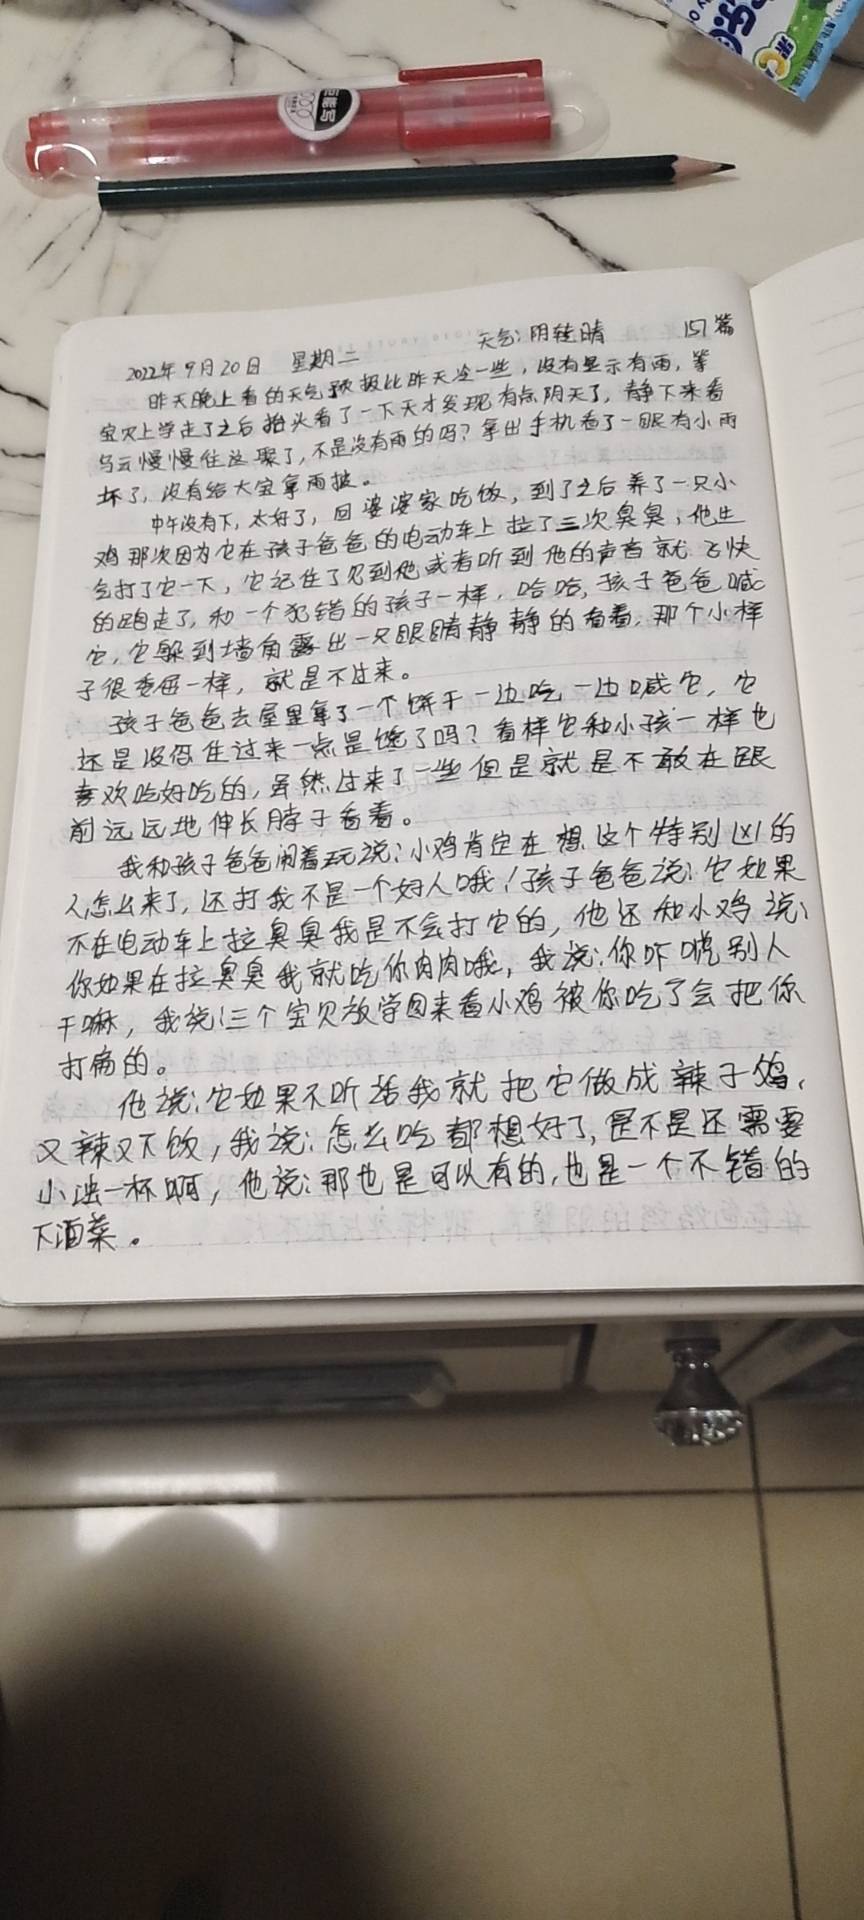 2022年9月20日 星期二 天气:阴转晴 157篇
昨天晚上看的天气预报比昨天冷一些,没有显示有雨,等
宝贝上学走了之后抬头看了一下天才发现有点阴天了,静下来看
乌云慢慢往这聚了,不是没有雨的吗?拿出手机看了一眼有小雨
坏了,没有给大宝拿雨披。
中午没有下,太好了,回婆婆家吃饭,到了之后养了一只小
鸡那次因为它在孩子爸爸的电动车上拉了三次臭臭,他生
气打了它一下,它记住了见到他或者听到他的声音就飞快
的跑走了,和一个犯错的孩子一样,哈哈,孩子爸爸喊
它,它躲到墙角露出一只眼睛静静的看着,那个小样
子很委屈一样,就是不过来。
孩子爸爸去屋里拿了一个饼干一边吃一边喊它,它
还是没忍住过来一点是馋了吗?看样它和小孩一样也
喜欢吃好吃的,虽然过来了一些但是就是不敢在跟
前远远地伸长脖子看着。
我和孩子爸爸闹着玩说:小鸡肯定在想这个特别凶的
人怎么来了,还打我不是一个好人哦!孩子爸爸说:它如果
不在电动车上拉臭臭我是不会打它的,他还和小鸡说:
你如果在拉臭臭我就吃你肉肉哦,我说:你吓唬别人
干嘛,我说:三个宝贝放学回来看小鸡被你吃了会把你
打扁的。
他说:它如果不听话我就把它做成辣子鸡,
又辣又下饭,我说:怎么吃都想好了,是不是还需要
小酌一杯啊,他说:那也是可以有的,也是一个不错的
下酒菜。